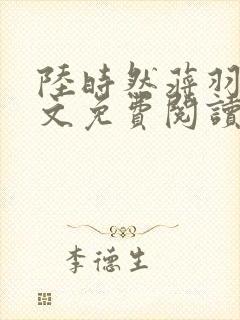 陸時然蒋羽
文免費閱讀
李德生